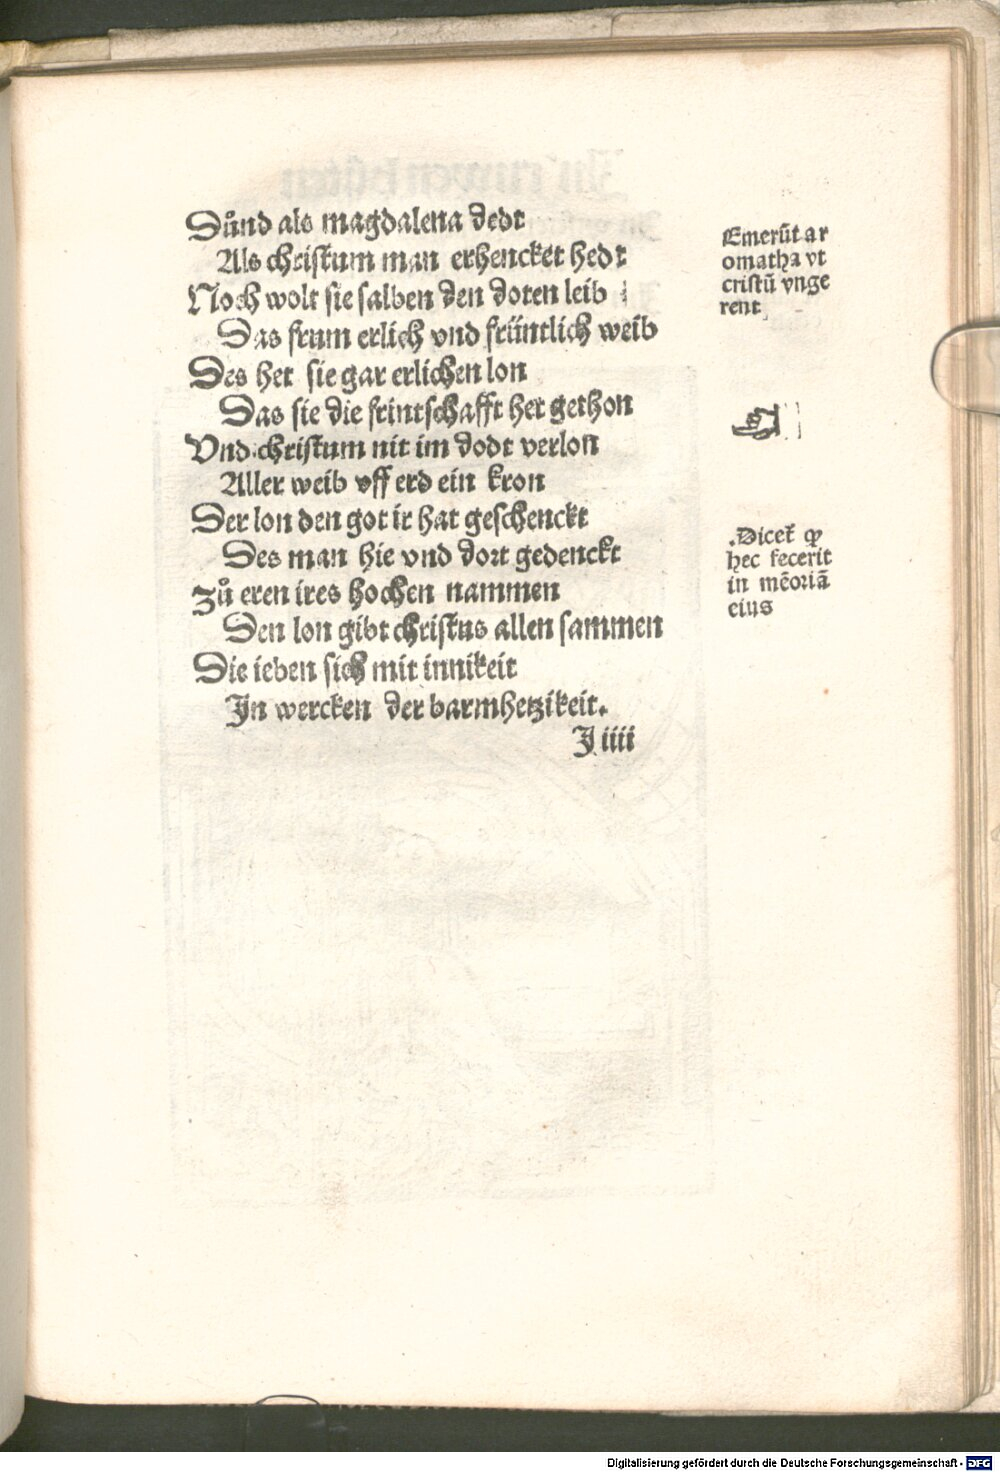 Sůnd als magdalena dedt
Als christum man erhencket hedt
Noch wolt sie salben den doten leib
Das frum erlich vnd früntlich weib
Des het sie gar erlichen lon
Das sie die frintschafft het gethon
Vnd christum nit im dodt verlon
Aller weib vff erd ein kron
Der lon den got ir hat geschenckt
Des man hie vnd dort gedenckt
Zů eren ires hochen nammen
Den lon gibt christus allen sammen
Die ieben sich mit innikeit
In wercken der barmhetzikeit.
J iiii
Emerūt ar
omatha vt
cristū vnge
rent
.Dicet̄ ꝙ
hec fecerit
in mēoriā
eius
Digitalisierung gefördert durch die Deutsche Forschungsgemeinschaft - DFG